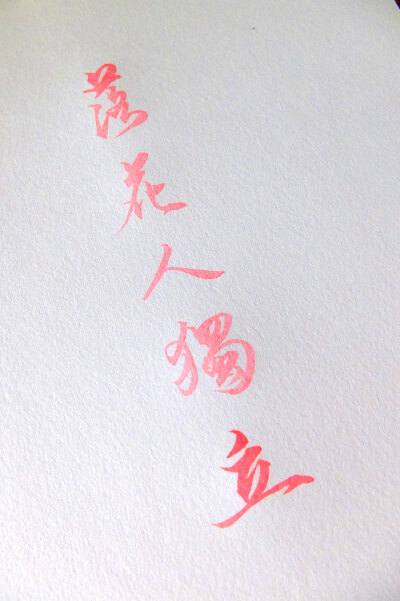 落花人獨立